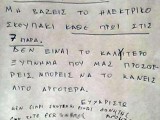 ΜΗ ΒΑΖΕΙΣ ΤΟ ΗΛΕΚΤΡΙΚΟ
ΣΚΟΥΠΑΚΙ ΚΑΘΕ ΠΡΩΙ ΣΤΙΣ
7 ΠΑΡΑ.
ΔΕΝ ΕΙΝΑΙ ΤΟ ΚΑΛΥΤΕΡΟ
ΞΥΠΝΗΜΑ ΠΟΥ ΜΑΣ ΠΡΟΣΦΕ-
ΡΕΙΣ, ΜΠΟΡΕΙΣ ΝΑ ΤΟ ΚΑΝΕΙΣ
ΛΙΓΟ ΑΡΓΟΤΕΡΑ.
ΕΥΧΑΡΙΣΤΩ
ΔΕΝ ΕΙΜΑΙ